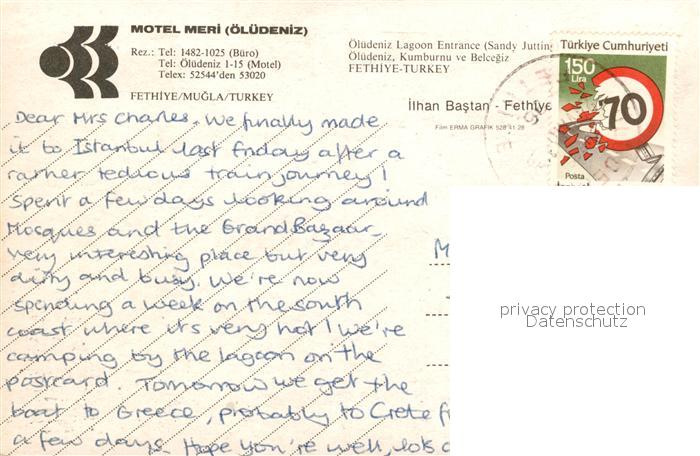 MOTEL MERİ (ÖLÜDENİZ)
Rez.: Tel: 1482-1025 (Büro)
Tel: Ölüdeniz 1-15 (Motel)
Telex: 52544'den 53020
FETHİYE/MUĞLA/TURKEY
Ölüdeniz Lagoon Entrance (Sandy Juttin
Ölüdeniz, Kumburnu ve Belceğiz
FETHİYE-TURKEY
İlhan Baştan - Fethiye
Film ERMA GRAFİK 528 41 28
Türkiye Cumhuriyeti
150
Lira
70
Posta
Dear Mrs Charles. We finally made
it to Istanbul last friday after a
rather tedious train journey!
Spent a few days looking around
Mosques and the Grand Bazaar.
very interesting place but very
dirty and busy. We're now
spending a week on the south
coast where its very hot! We're
camping by the lagoon on the
postcard. Tomorrow we get the
boat to Greece, probably to Crete f
a few days. Hope you're well, lots o
M
privacy protection
Datenschutz